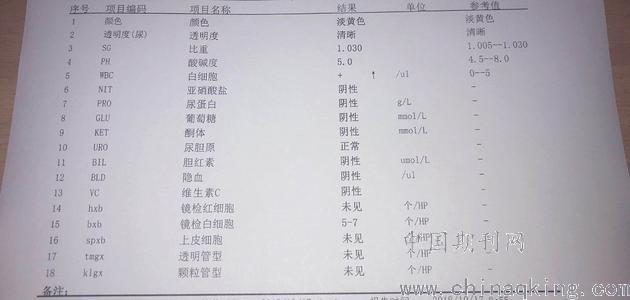 序号 项目编码 项目名称 结果 单位 参考值
1 颜色 颜色 淡黄色 淡黄色
2 透明度(尿) 透明度 清晰 清晰
3 SG 比重 1.030 1.005--1.030
4 PH 酸碱度 5.0 4.5--8.0
5 WBC 白细胞 + ↑ /ul 0--5
6 NIT 亚硝酸盐 阴性 -
7 PRO 尿蛋白 阴性 g/L -
8 GLU 葡萄糖 阴性 mmol/L -
9 KET 酮体 阴性 mmol/L -
10 URO 尿胆原 正常 -
11 BIL 胆红素 阴性 umol/L -
12 BLD 隐血 阴性 /ul -
13 VC 维生素C 阴性
14 hxb 镜检红细胞 未见 个/HP -
15 bxb 镜检白细胞 5-7 个/HP -
16 spxb 上皮细胞 未见 个/HP -
17 tmgx 透明管型 未见 个/HP -
18 klgx 颗粒管型 未见 个/HP -
中国期刊网
备注:
www.chinaqking.com